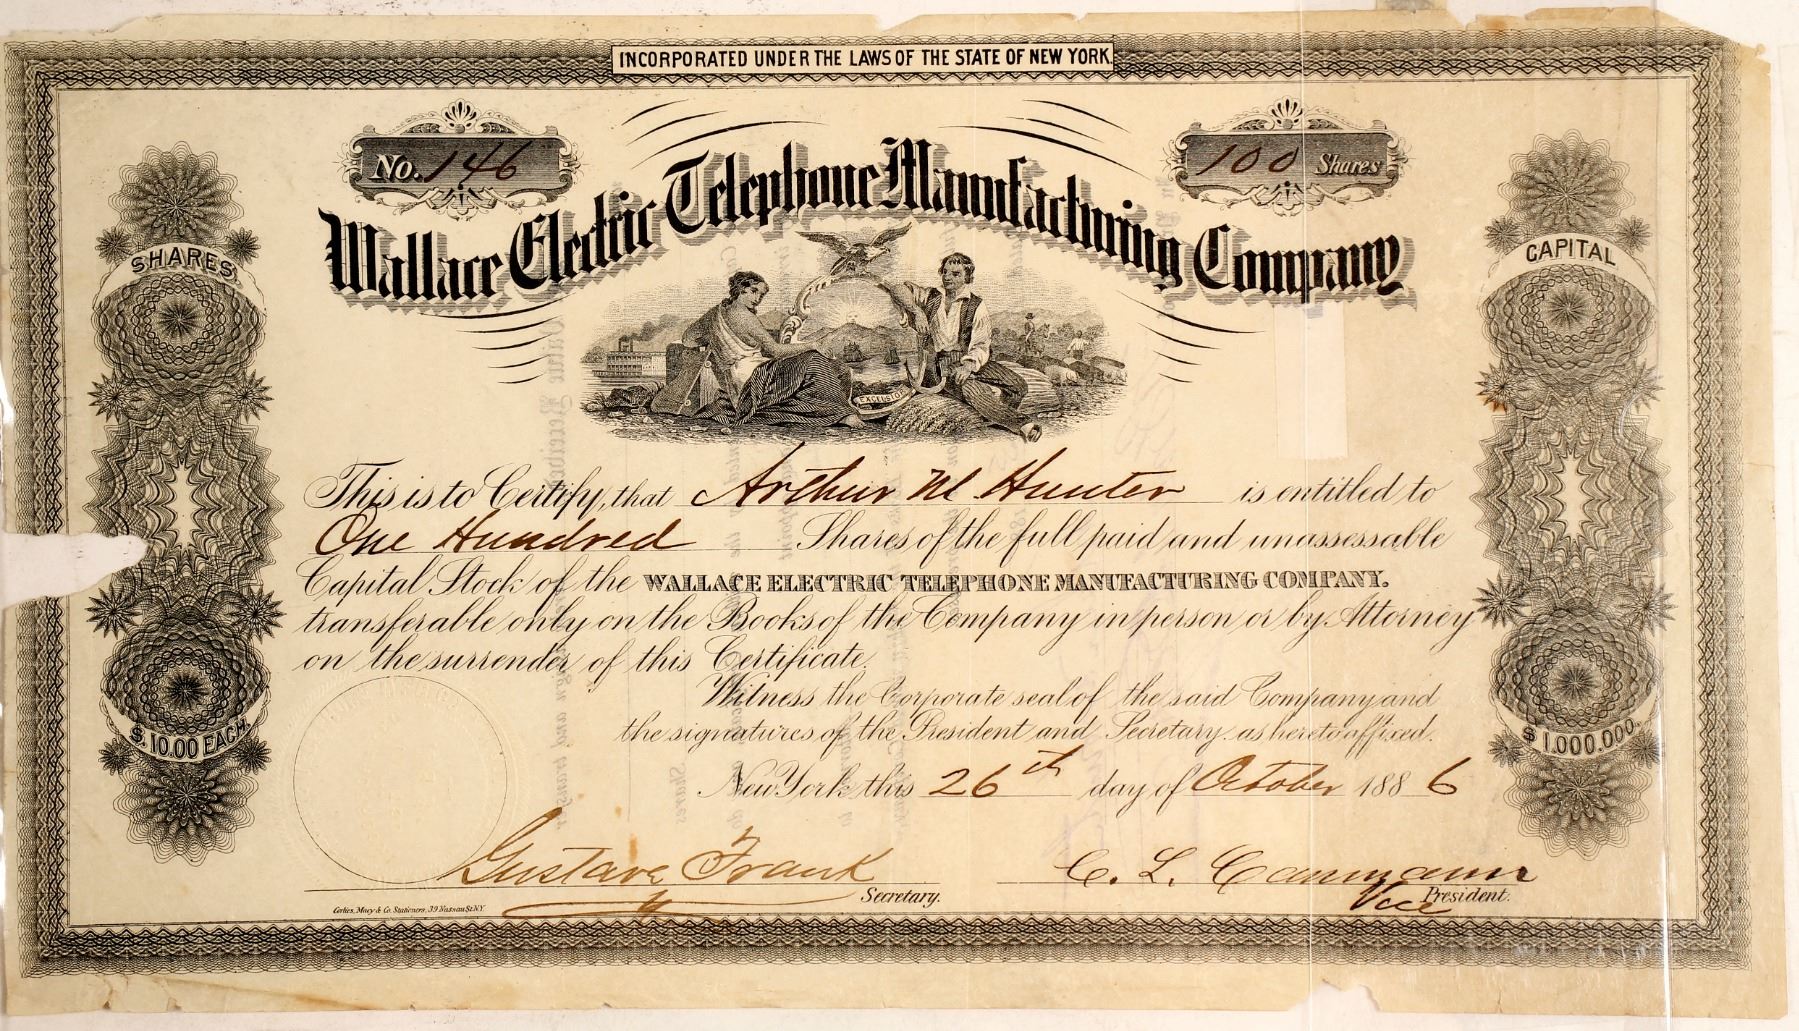 INCORPORATED UNDER THE LAWS OF THE STATE OF NEW YORK.
No. 146
100 Shares
Wallace Electric Telephone Manufacturing Company
SHARES
CAPITAL
EXCELSIOR
This is to Certify, that Arthur M Hunter is entitled to
One Hundred Shares of the full paid and unassessable
Capital Stock of the WALLACE ELECTRIC TELEPHONE MANUFACTURING COMPANY.
transferable only on the Books of the Company in person or by Attorney
on the surrender of this Certificate.
Witness the Corporate seal of the said Company and
the signatures of the President and Secretary, as hereto affixed.
$.10.00 EACH.
$1.000.000.
New York this 26th day of October 1886
Gustave Frank
Secretary.
C. L.
Vice President.
Corlies, Macy & Co. Stationers, 39 Nassau St. N.Y.